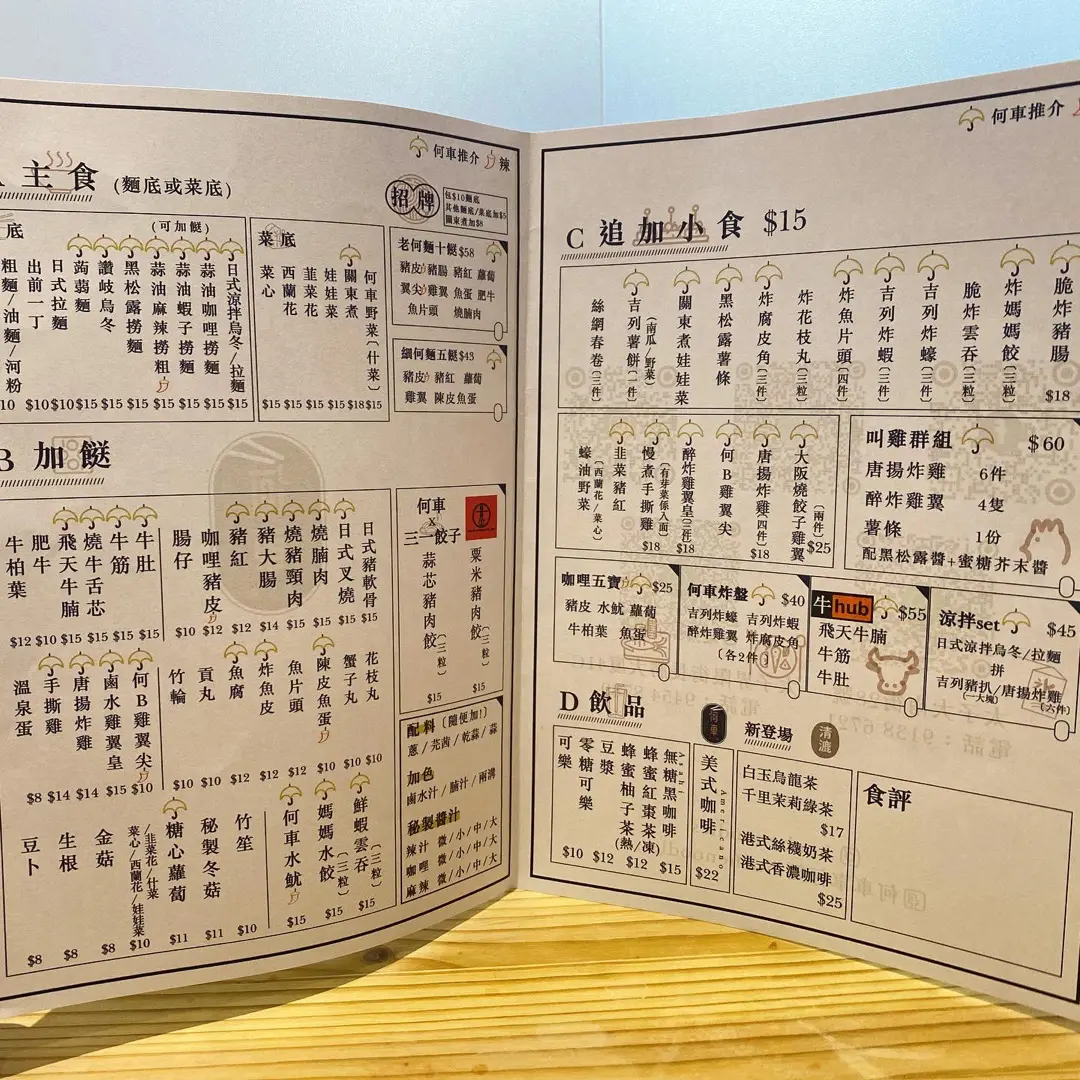 何車推介 辣
主食 (麵底或菜底)
底
(可加餸)
粗麵/油麵/河粉
$10
出前一丁
$10
日式拉麵
$10
蒟蒻麵
$15
讚岐烏冬
$15
黑松露撈麵
$15
蒜油麻辣撈粗
$15
蒜油蝦子撈麵
$15
蒜油咖哩撈麵
$15
日式涼拌烏冬/拉麵
$15
菜底
菜心
$15
西蘭花
$15
韮菜花
$15
娃娃菜
$15
關東煮
$18
何車野菜(什菜)
$15
招牌
包$10麵底
其他麵底/菜底加$5
關東煮加$8
老何麵十餸$58
豬皮 豬腸 豬紅 蘿蔔
翼尖 雞翼 魚蛋 肥牛
魚片頭 燒腩肉
細何麵五餸$43
豬皮 豬紅 蘿蔔
雞翼 陳皮魚蛋
B 加餸
牛柏葉
$12
肥牛
$10
飛天牛腩
$15
燒牛舌芯
$15
牛筋
$15
牛肚
$15
腸仔
$10
咖哩豬皮
$12
豬紅
$12
豬大腸
$14
燒豬頸肉
$15
燒腩肉
$15
日式叉燒
$15
日式豬軟骨
$15
溫泉蛋
$8
手撕雞
$14
唐揚炸雞
$14
鹵水雞翼皇
$15
何B雞翼尖
$10
竹輪
$10
貢丸
$10
魚腐
$12
炸魚皮
$12
魚片頭
$12
陳皮魚蛋
$10
蟹子丸
$10
花枝丸
$10
豆卜
$8
生根
$8
金菇
$8
菜心/西蘭花/娃娃菜
/韭菜花/什菜
$10
糖心蘿蔔
$11
秘製冬菇
$11
竹笙
$10
何車水魷
$15
媽媽水餃(三粒)
$15
鮮蝦雲吞(三粒)
$15
何車
x
三一餃子
蒜芯豬肉餃(三粒)
$15
粟米豬肉餃(三粒)
$15
配料(隨便加!)
蔥/芫茜/乾蒜/蒜
加色
鹵水汁/腩汁/兩溝
秘製醬汁
辣汁 微/小/中/大
咖哩 微/小/中/大
麻辣 微/小/中/大
何車推介
C 追加小食 $15
絲網春卷(三件)
吉列薯餅(一件)
(南瓜/野菜)
關東煮娃娃菜
黑松露薯條
炸腐皮角(三件)
炸花枝丸(三粒)
炸魚片頭(四件)
吉列炸蝦(三件)
吉列炸蠔(三件)
脆炸雲吞(三粒)
炸媽媽餃(三粒)
脆炸豬腸
$18
蠔油野菜
(西蘭花/菜心)
韭菜豬紅
慢煮手撕雞
(有芽菜係入面)
$18
醉炸雞翼皇(三件)
$18
何B雞翼尖
唐揚炸雞(四件)
$18
大阪燒餃子雞翼
(兩件)
$25
叫雞群組 $60
唐揚炸雞 6件
醉炸雞翼 4隻
薯條 1份
配黑松露醬+蜜糖芥末醬
咖哩五寶 $25
豬皮 水魷 蘿蔔
牛柏葉 魚蛋
何車炸盤 $40
吉列炸蠔 吉列炸蝦
醉炸雞翼 炸腐皮角
(各2件)
牛hub $55
飛天牛腩
牛筋
牛肚
涼拌set $45
日式涼拌烏冬/拉麵
拼
吉列豬扒/唐揚炸雞
(一大塊) (六件)
D 飲品
可樂
零糖可樂
$10
豆漿
$12
蜂蜜柚子茶
蜂蜜紅棗茶
(熱/凍)
$12
無糖黑咖啡
Asahi
$15
何車
美式咖啡
Americano
$22
新登場
清漉
白玉烏龍茶
千里茉莉綠茶
$17
港式絲襪奶茶
港式香濃咖啡
$25
食評